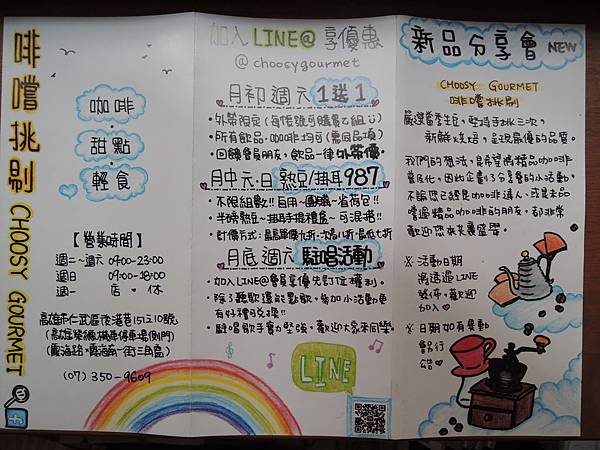 啡嚐挑剔 CHOOSY GOURMET
咖啡
甜點
輕食
【營業時間】
週二~週六 09:00-23:00
週日 09:00-18:00
週一 店。休
高雄市仁武區後港巷151之10號
(07) 350-9609
加入 LINE@ 享優惠
@choosygourmet
月初週六 1送1
•外帶限定(每帳號可購買乙組)
•所有飲品、咖啡均可(需同品項)
•回饋會員朋友,飲品一律外帶價。
月中六、日 熟豆/掛耳 987
•不限組數!! 自用~團購~省荷包!!
•半磅熟豆~掛耳手提禮盒~可混搭!!
•計價方式:最高單價九折、次高八折、最低七折
月底週六 駐唱活動
•加入LINE@會員享優先訂位權利。
•除了聽歌還能點歌,參加小活動更
有好禮可兌換!!
•駐唱歌手實力堅強,歡迎大家來同樂。
LINE
新品分享會 NEW
CHOOSY GOURMET
啡嚐挑剔
嚴選當季生豆,堅持手挑三次,
新鮮烘焙,呈現最優的品質。
我們的想法,是希望將精品咖啡
普及化,因此企劃了分享會的小活動。
不論您已經是咖啡達人、或是未品
嚐過精品咖啡的朋友,都非常
歡迎您來共襄盛舉。
※ 活動日期
將透過LINE
發佈,歡迎
加入♥
※ 日期如有異動
另行
公告♥